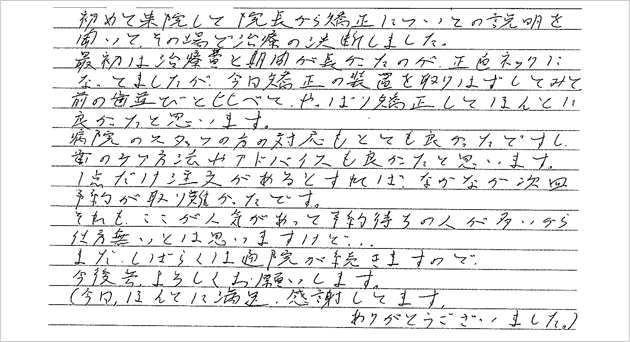 初めて来院して院長から矯正についての説明を
聞いて、その場で治療の決断しました。
最初は治療費と期間が長かったのが、正直ネックに
なってましたが、今日矯正の装置を取りはずしてみて
前の歯並びと比べて、やっぱり矯正してほんとに
良かったと思います。
病院のスタッフの方の対応もとても良かったですし、
歯のケア方法やアドバイスも良かったと思います。
1点だけ注文があるとすれば、なかなか次回
予約が取り難かったです。
それも、ここが人気があって予約待ちの人が多いから
仕方無いとは思いますけど...
まだ、しばらくは通院が続きますので、
今後共、よろしくお願いします。
(今日、ほんとに満足、感謝してます。
ありがとうございました。)